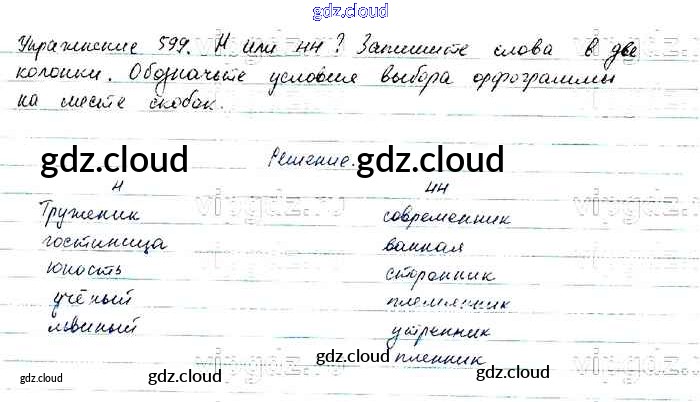 gdz.cloud
Упражнение 599. Н или нн? Запишите слова в две
колонки. Обозначьте условия выбора орфограммы
на месте скобок.
gdz.cloud Решение. gdz.cloud
н нн
Труженик vipgdz.ru современник vipgdz.ru
гостиница ванная
юность сторонник
учёный племянник
львиный утренник
gdz.cloud пленник
gdz.cloud gdz.cloud gdz.cloud vipgdz.ru